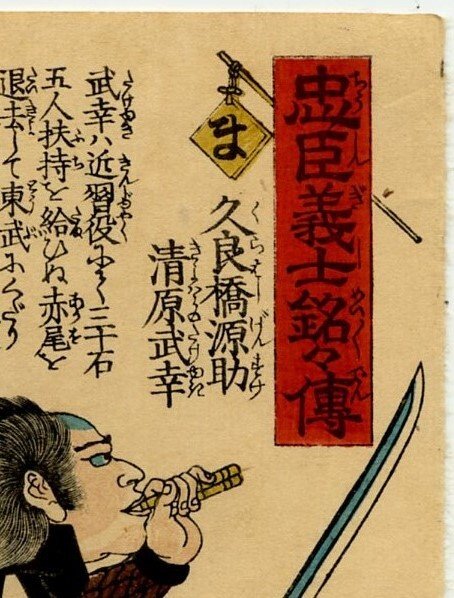 忠臣義士銘々傳
ま
久良橋源助
清原武幸
武幸ハ近習役にて三十石
五人扶持を給ひぬ赤尾を
退去して東武にくだり